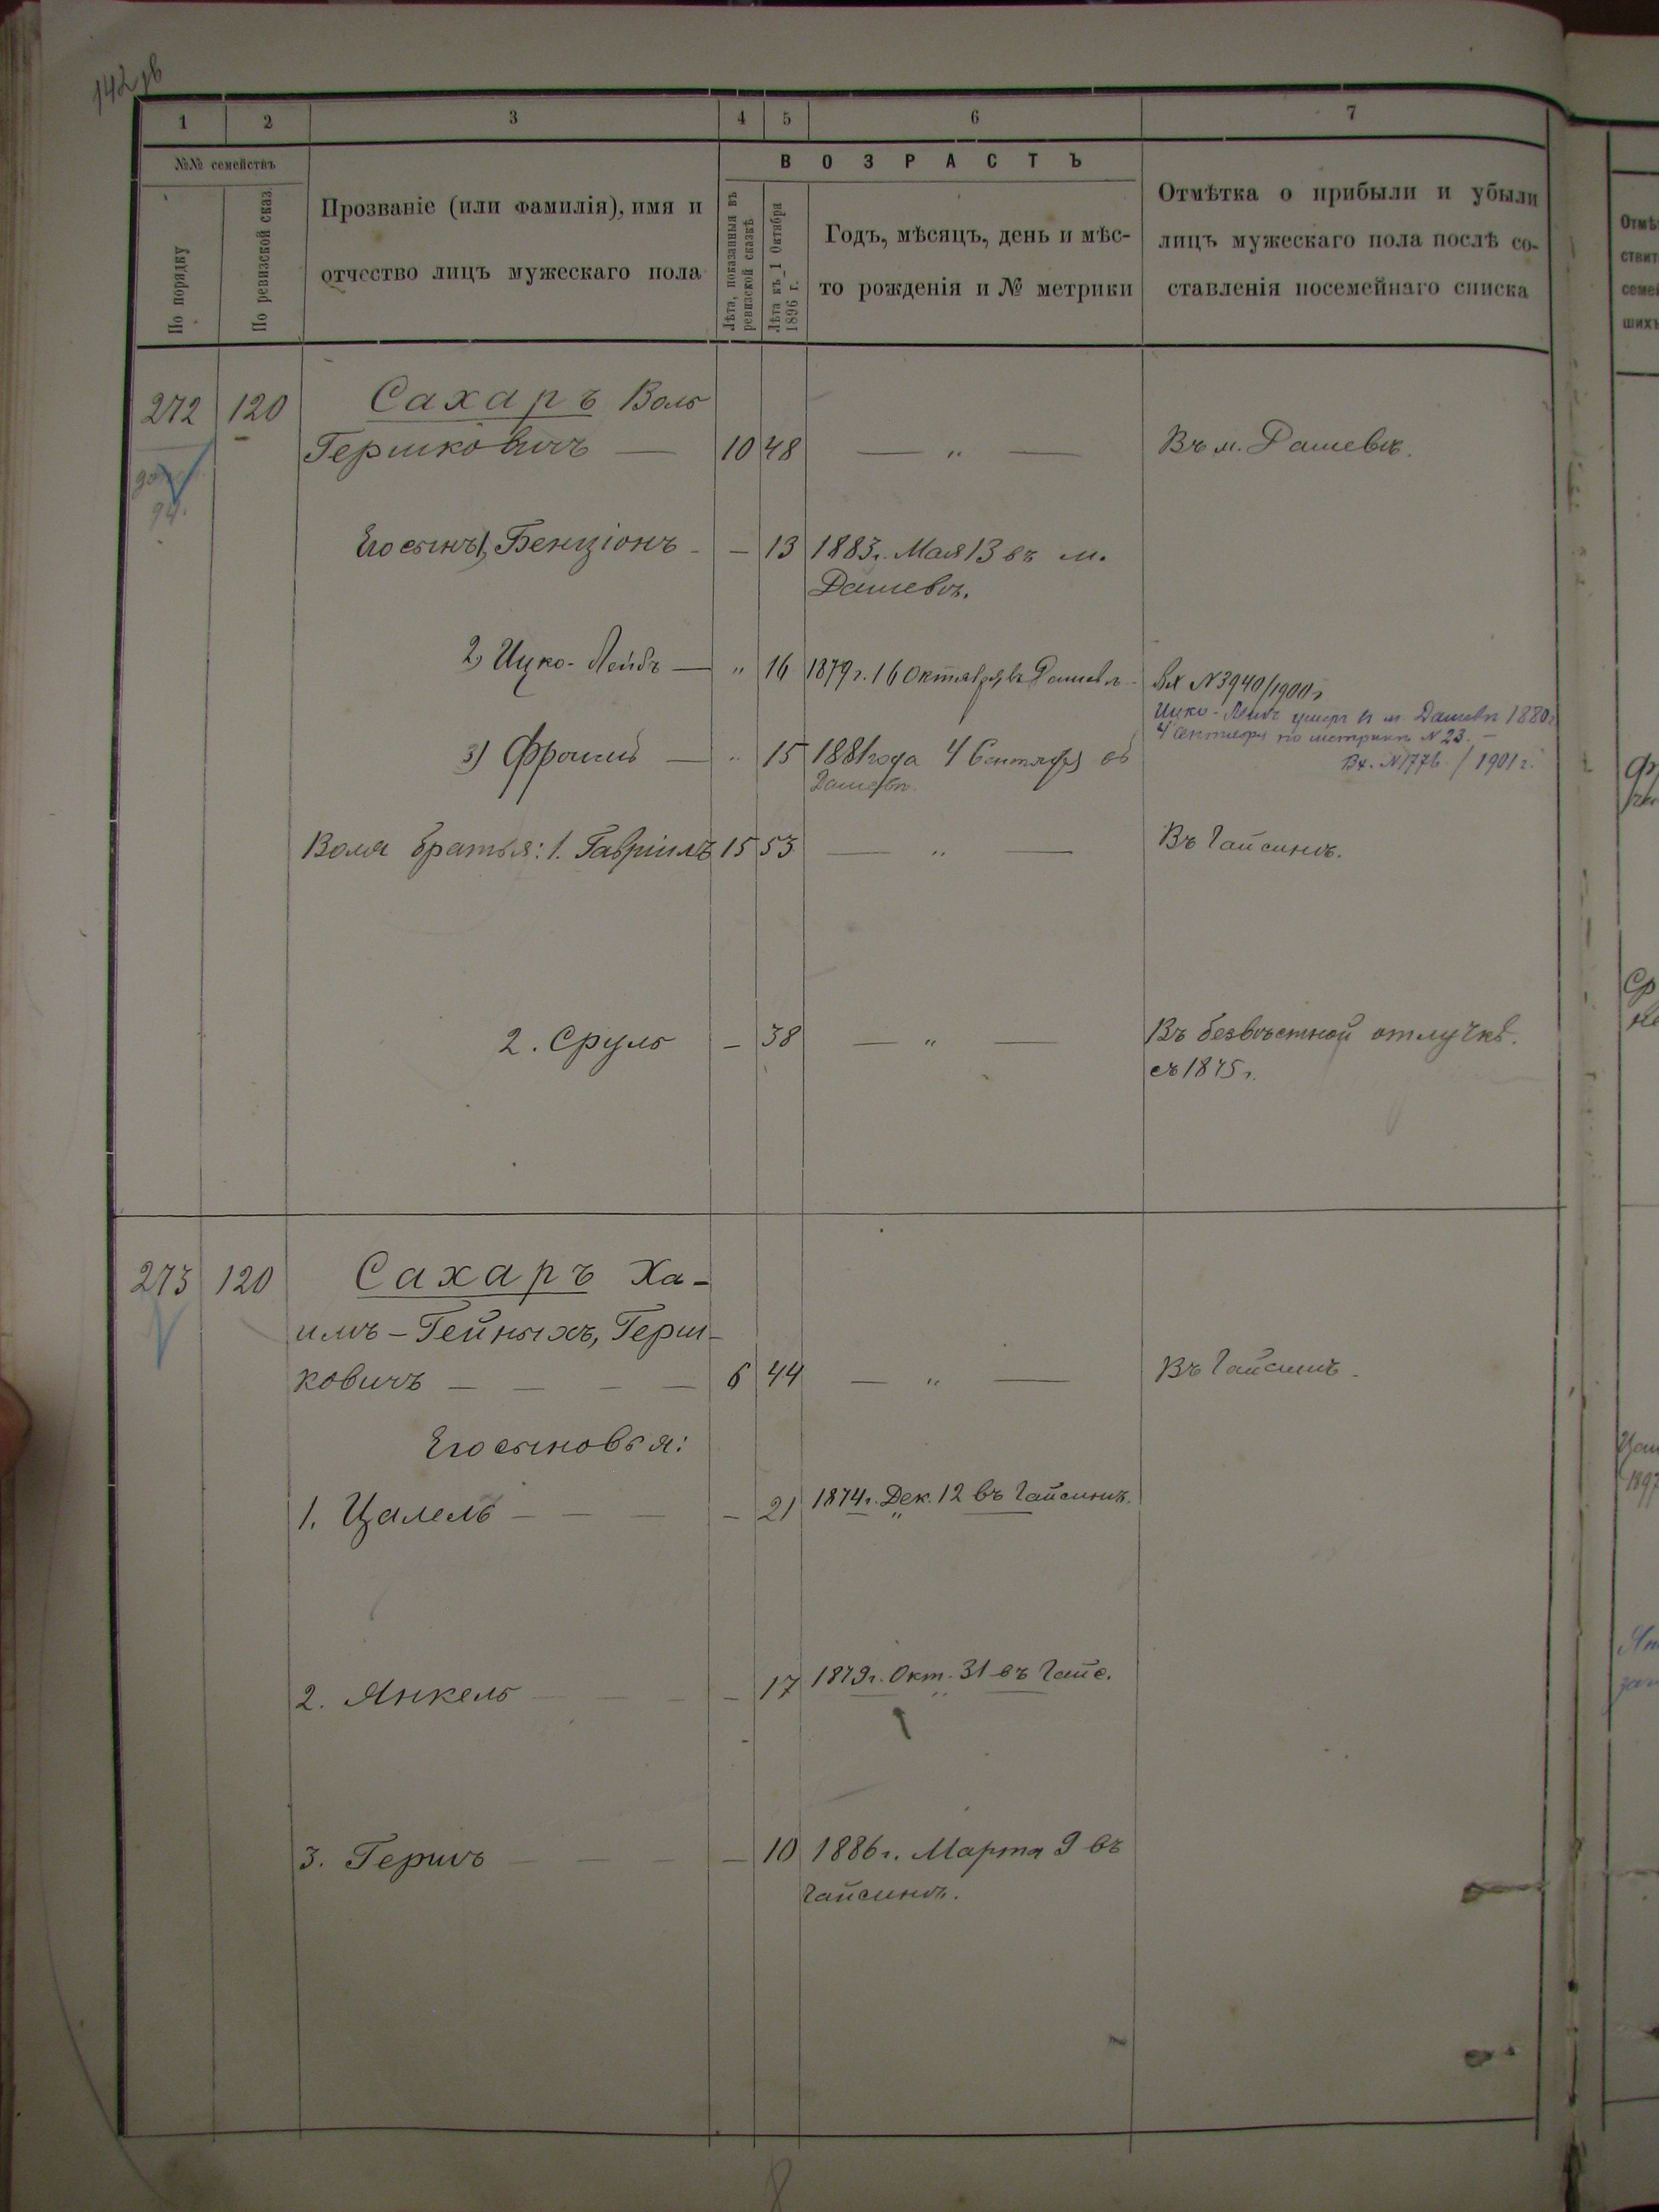 142 об
1 2 3 4 5 6 7
№№ семействъ
По порядку
По ревизской сказ.
Прозваніе (или фамилія), имя и
отчество лицъ мужескаго пола
ВОЗРАСТЪ
Лѣта, показанныя въ
ревизской сказкѣ
Лѣта къ 1 Октября
1896 г.
Годъ, мѣсяцъ, день и мѣс-
то рожденія и № метрики
Отмѣтка о прибыли и убыли
лицъ мужескаго пола послѣ со-
ставленія посемейнаго списка
272 120 Сахаръ Воль
Гершковичъ — 10 48 — " — Въ м. Дашевѣ.
94.
Его сынъ 1, Бенціонъ - — 13 1883г. Мая 13 въ м.
Дашевѣ.
2, Ицко-Лейбъ — " 16 1879 г. 16 Октября въ Дашевѣ - Вх N 3940/1900 г
Ицко-Лейбъ умеръ в м Дашевѣ 1880 г
4 Сентября по метрикѣ N 23. —
Вх. N 1776 / 1901 г.
3) Фроимъ — " 15 1881 года 4 Сентября въ
Дашевѣ.
Воля братья: 1. Гавріилъ 15 53 — " — Въ Гайсинѣ.
2. Сруль — 38 — " — Въ безвѣстной отлучкѣ.
съ 1875 г.
273 120 Сахаръ Ха-
имъ-Гейныхъ, Герш-
ковичъ — — — — 6 44 — " — Въ Гайсинѣ.
Его сыновья:
1. Цалель — — — — 21 1874 г. Дек. 12 въ Гайсинѣ.
2. Янкель — — — — 17 1879 г. Окт. 31 въ Гайс.
3. Гершъ — — — — 10 1886 г. Марта 9 въ
Гайсинѣ.